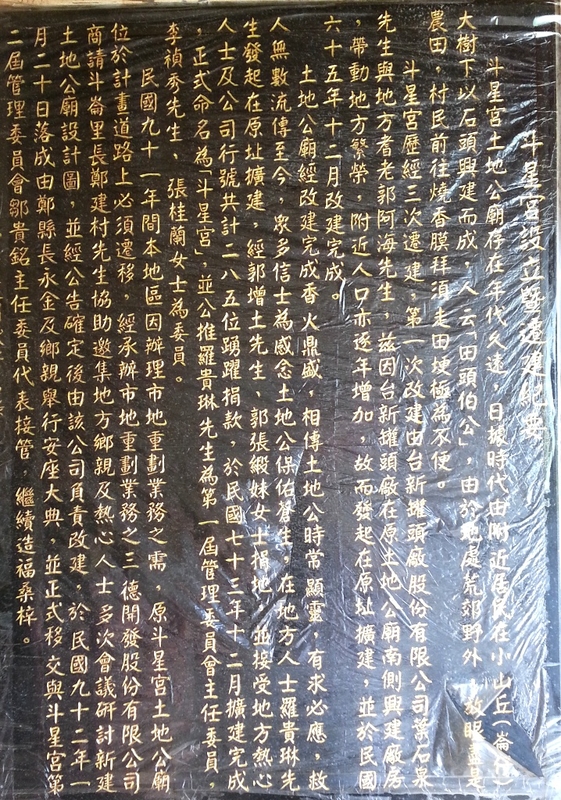 斗星宮設立暨遷建紀要
斗星宮土地公廟存在年代久遠，日據時代由附近居民在小山丘（崙仔）
大樹下以石頭興建而成，人云「田頭伯公」，由於地處荒郊野外，放眼盡是
農田，村民前往燒香膜拜須走田埂極為不便。
斗星宮歷經三次遷建，第一次改建由台新罐頭廠股份有限公司葉石泉
先生與地方耆老郭阿海先生，茲因台新罐頭廠在原土地公廟南側興建廠房
，帶動地方繁榮，附近人口亦逐年增加，故而發起在原址擴建，並於民國
六十五年十二月改建完成。
土地公廟經改建完成香火鼎盛，相傳土地公時常顯靈，有求必應，救
人無數流傳至今，眾多信士為感念土地公保佑蒼生，在地方人士羅貴琳先
生發起在原址擴建，經郭增土先生、郭張緞妹女士捐地，並接受地方熱心
人士及公司行號共計二八五位踴躍捐款，於民國七十三年十二月擴建完成
，正式命名為「斗星宮」，並公推羅貴琳先生為第一屆管理委員會主任委員，
李禎秀先生、張桂蘭女士為委員。
民國九十一年間本地區因辦理市地重劃業務之需，原斗星宮土地公廟
位於計畫道路上必須遷移，經承辦市地重劃業務之三德開發股份有限公司
商請斗崙里長鄭建村先生協助邀集地方鄉親及熱心人士多次會議研討新建
土地公廟設計圖，並經公告確定後由該公司負責改建，於民國九十二年一
月二十日落成由鄭縣長永金及鄉親舉行安座大典，並正式移交與斗星宮第
二屆管理委員會鄒貴銘主任委員代表接管，繼續造福桑梓。